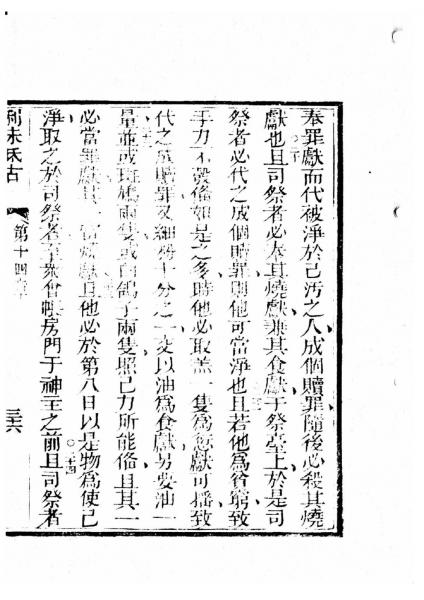 奉罪獻而代被淨於己汚之人成個贖罪隨後必殺其燒
二十
獻也且司祭者必奉其燒獻兼其食獻于祭臺上於是司
祭者必代之成個贖罪則他可當淨也且若他爲貧窮致
手力不彀俻如是之多時他必取羔一隻爲愆獻可搖致
代之成贖罪又細粉十分之一交以油爲食獻另要油一
量並或斑鳩兩隻或白鴿子兩隻照己力所能俻且其一
必當罪獻其一當燒獻且他必於第八日以是物爲使己
淨取之於司祭者至衆會帳房門于神主之前且司祭者
第十四章
三六